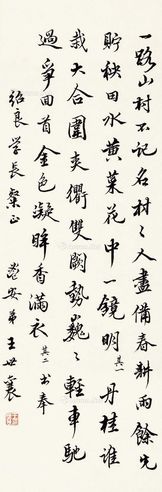 一路山村不记名村〻人尽备春耕雨馀先
贮秧田水黄菜花中一镜明其一丹桂谁
栽大合围夹衢双阙势巍〻轻车驰
过争回首金色凝眸香满衣其二书奉
绍良学长粲正
畅安弟王世襄